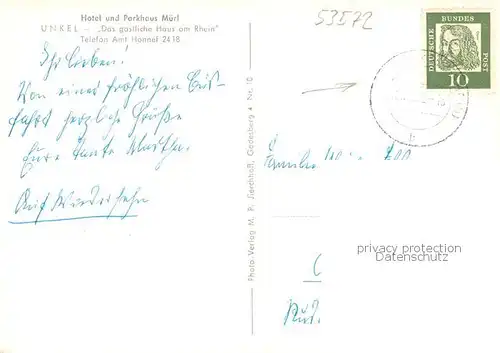 Hotel und Parkhaus Mürl
UNKEL - „Das gastliche Haus am Rhein"
Telefon Amt Honnef 2418
Ihr Lieben!
Von einer fröhlichen Bus-
fahrt herzliche Grüße
Eure Tante Martha.
Auf Wiedersehn
Photo-Verlag M. P. Sierchhall, Godesberg Nr. 10
53572
DEUTSCHE BUNDES POST
10
Familie
privacy protection
Datenschutz